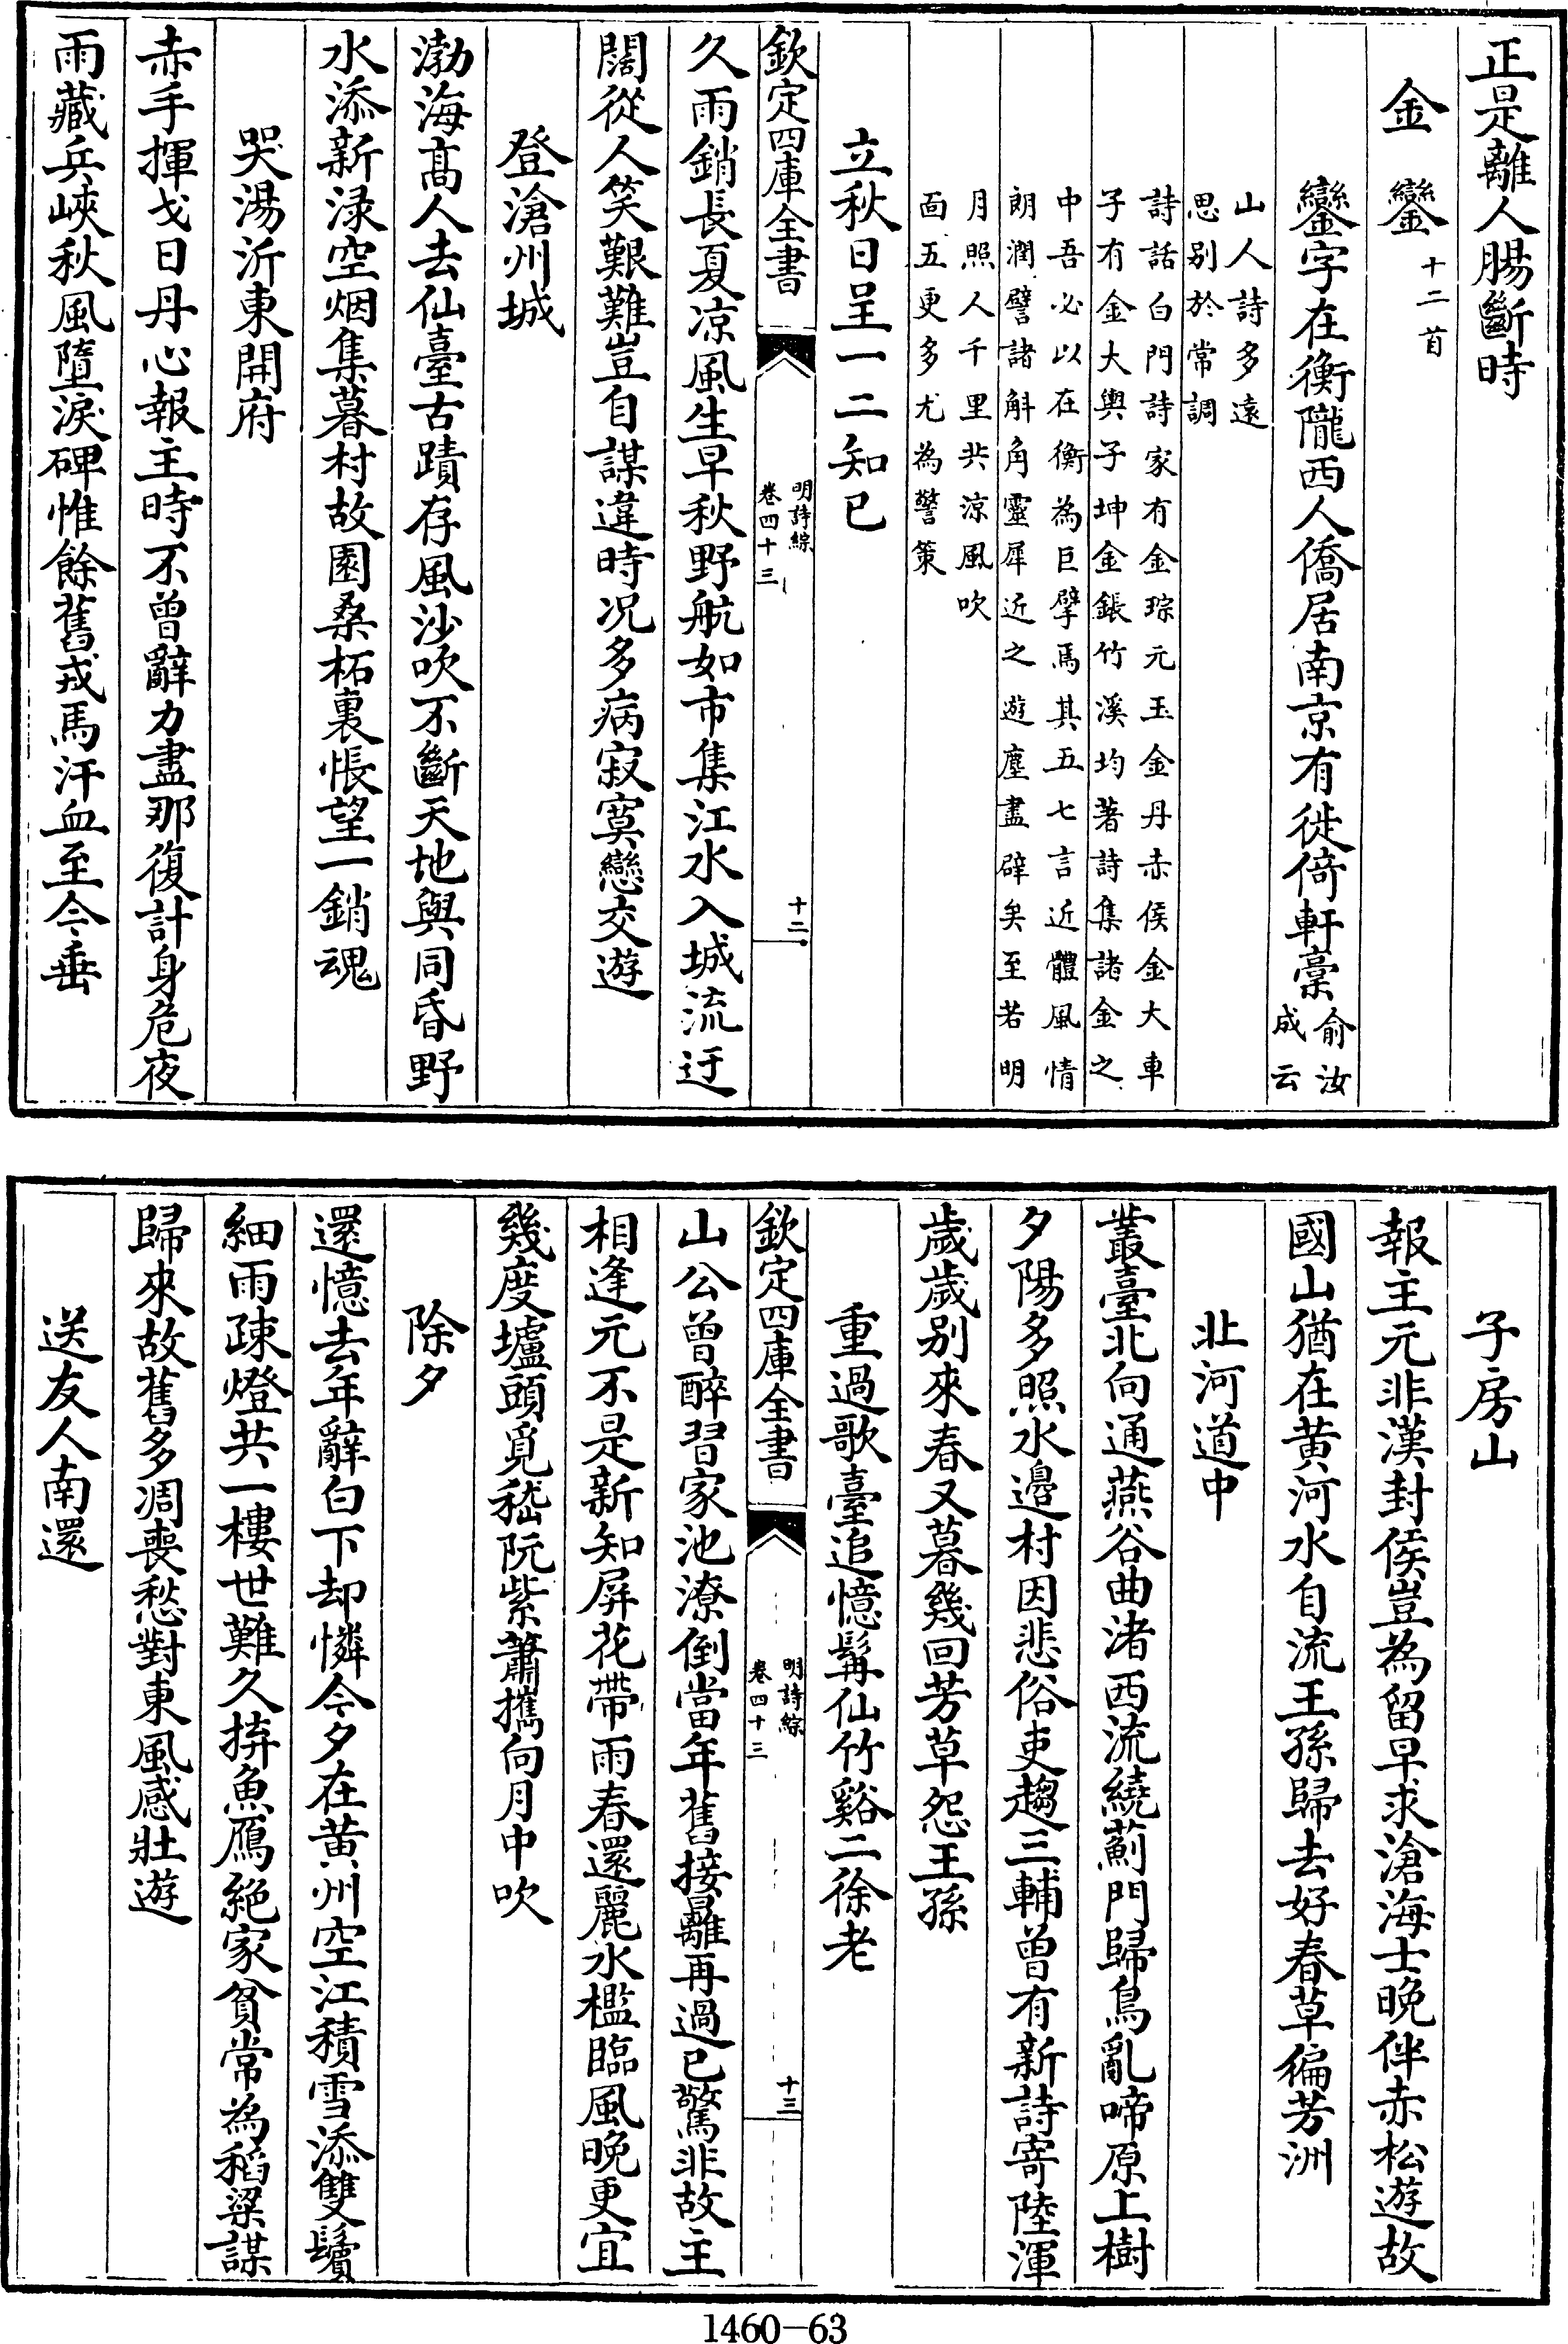 正是離人腸斷時
金鑾十二首
鑾字在衡隴西人僑居南京有徙倚軒藁俞汝成云
山人詩多遠思别於常調
詩話白門詩家有金琮元玉金丹赤侯金大車子有金大輿子坤金鋹竹溪均著詩集諸金之
中吾必以在衡為巨擘焉其五七言近體風情朗潤譬諸斛角靈犀近之遊塵盡辟矣至若明
月照人千里共涼風吹面五更多尤為警策
立秋日呈一二知已
欽定四庫全書
明詩綜
卷四十三
十二
久雨銷長夏凉風生早秋野航如市集江水入城流迂
闊從人笑艱難豈自謀違時况多病寂寞戀交遊
登滄州城
渤海髙人去仙臺古蹟存風沙吹不斷天地與同昏野
水添新渌空烟集暮村故園桑柘裏悵望一銷魂
哭湯沂東開府
赤手揮戈日丹心報主時不曾辭力盡那復計身危夜
雨藏兵峽秋風墮淚碑惟餘舊戎馬汗血至今垂
子房山
報主元非漢封侯豈為留早求滄海士晚伴赤松遊故
國山猶在黄河水自流王孫歸去好春草徧芳洲
北河道中
叢臺北向通燕谷曲渚西流繞薊門歸鳥亂啼原上樹
夕陽多照水邉村因悲俗吏趨三輔曾有新詩寄陸渾
歲歲别來春又暮幾回芳草怨王孫
重過歌臺追憶髯仙竹谿二徐老
欽定四庫全書
明詩綜
卷四十三
十三
山公曾醉習家池潦倒當年舊接䍦再過已驚非故主
相逢元不是新知屏花帶雨春還麗水檻臨風晚更宜
幾度壚頭覓嵇阮紫蕭攜向月中吹
除夕
還憶去年辭白下却憐今夕在黄州空江積雪添雙鬢
細雨疎燈共一樓世難久拚魚鴈絶家貧常為稻粱謀
歸來故舊多凋喪愁對東風感壯遊
送友人南還
1460-63